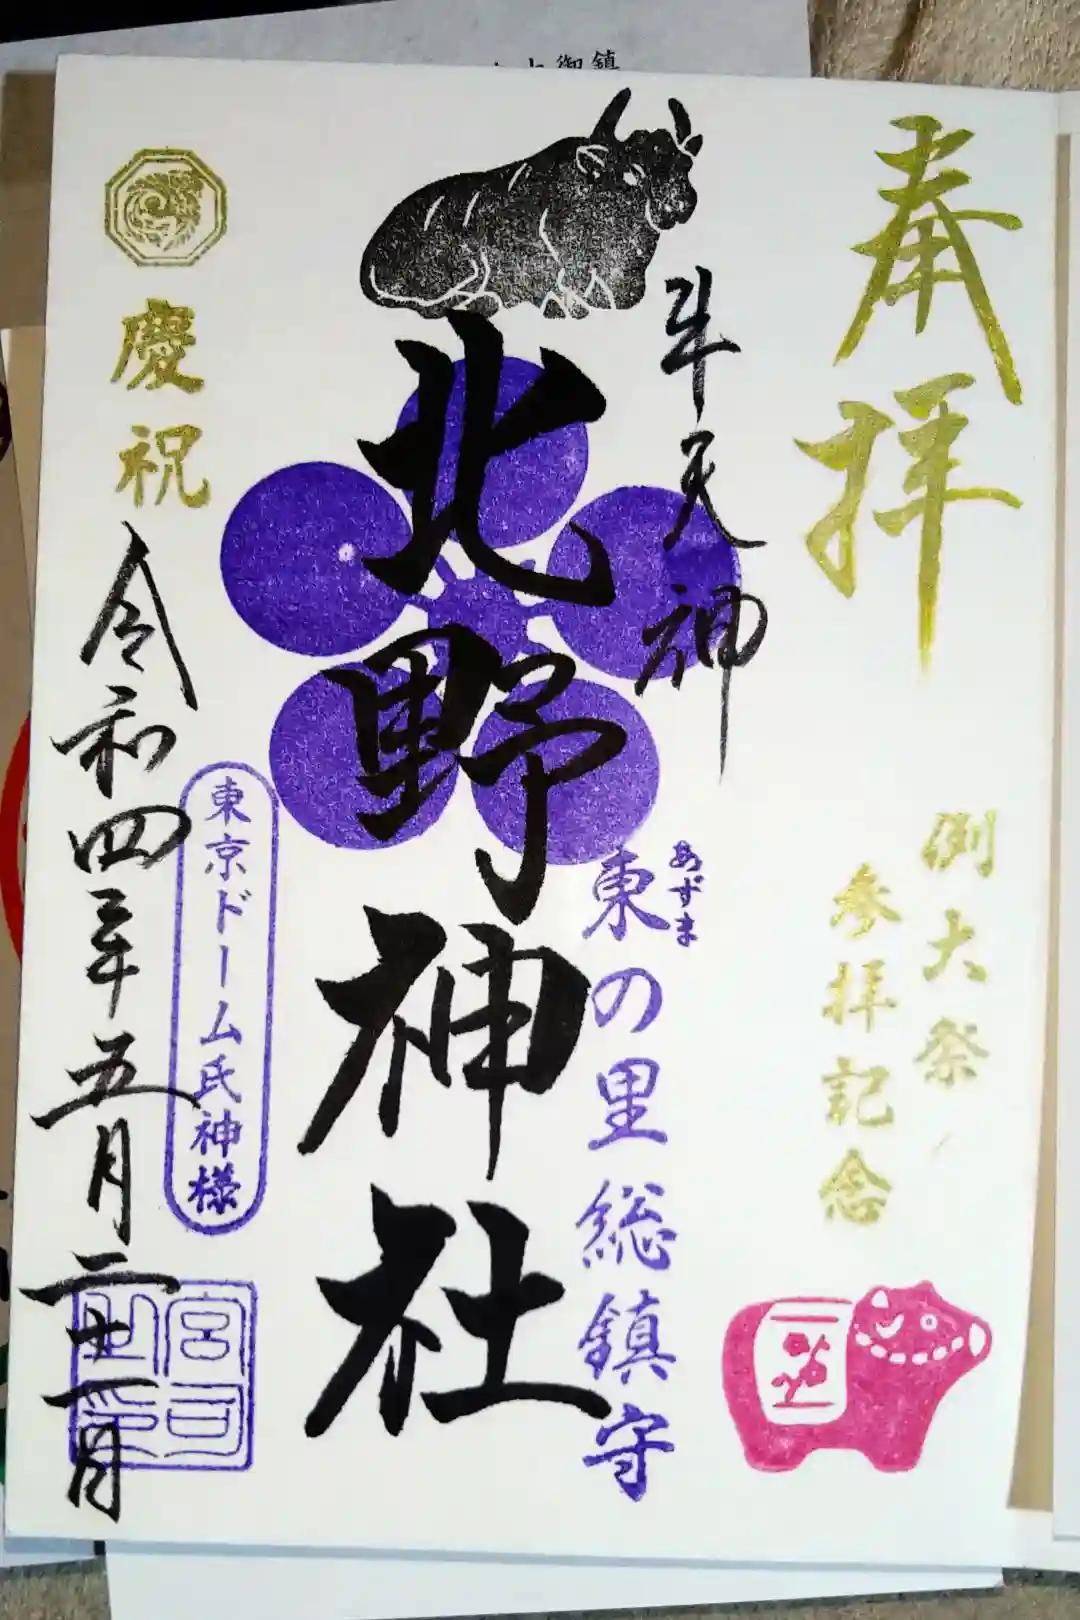 奉拝
例大祭
参拝記念
牛天神
あずま
東の里総鎮守
北野神社
東京ドーム氏神様
慶祝
令和四年五月二十一日
宮司之印